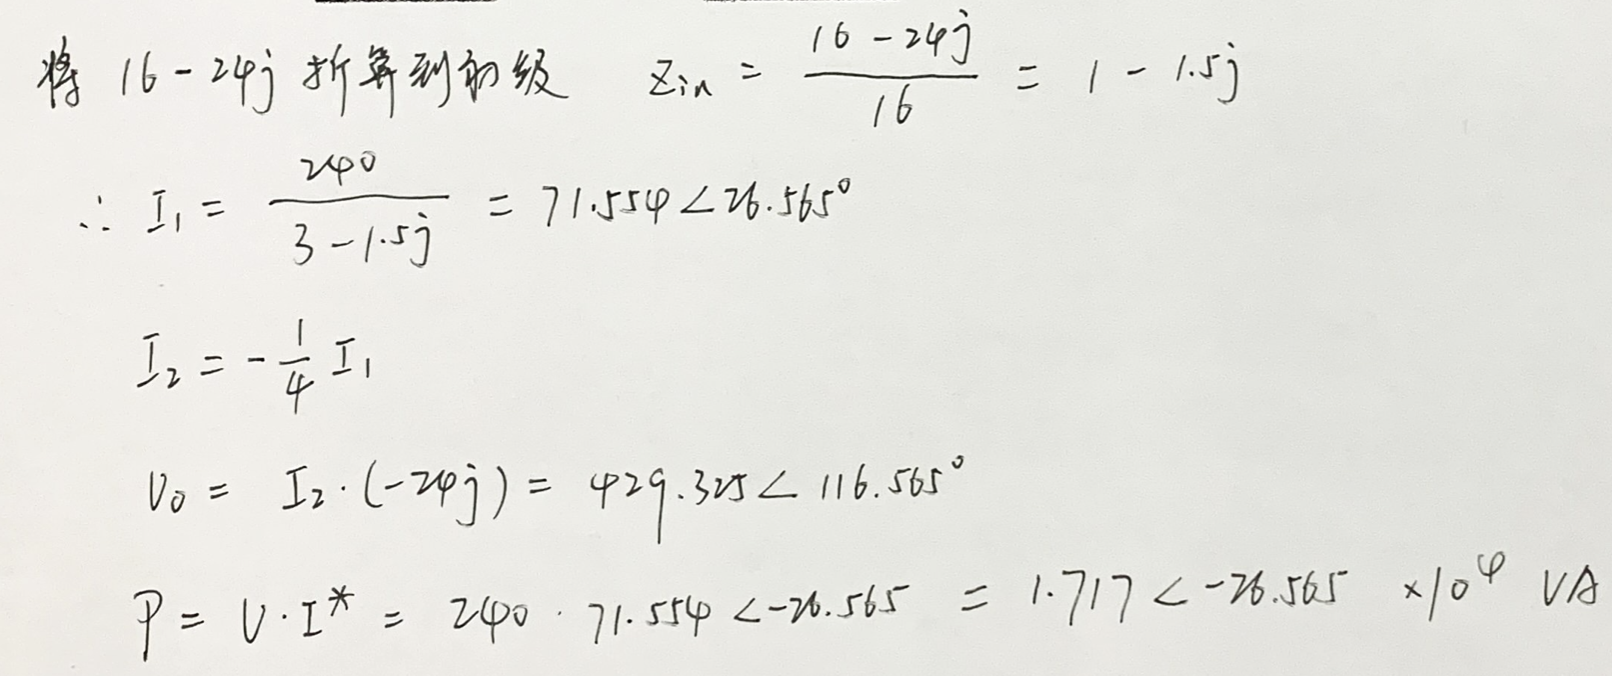 将 16-24j 折算到初级 Zin = \frac{16-24j}{16} = 1-1.5j
∴ I₁ = \frac{240}{3-1.5j} = 71.554∠26.565°
I₂ = -\frac{1}{4} I₁
V₀ = I₂·(-24j) = 429.325∠116.565°
P = V·I* = 240·71.554∠-26.565 = 1.717∠-26.565 ×10⁴ VA